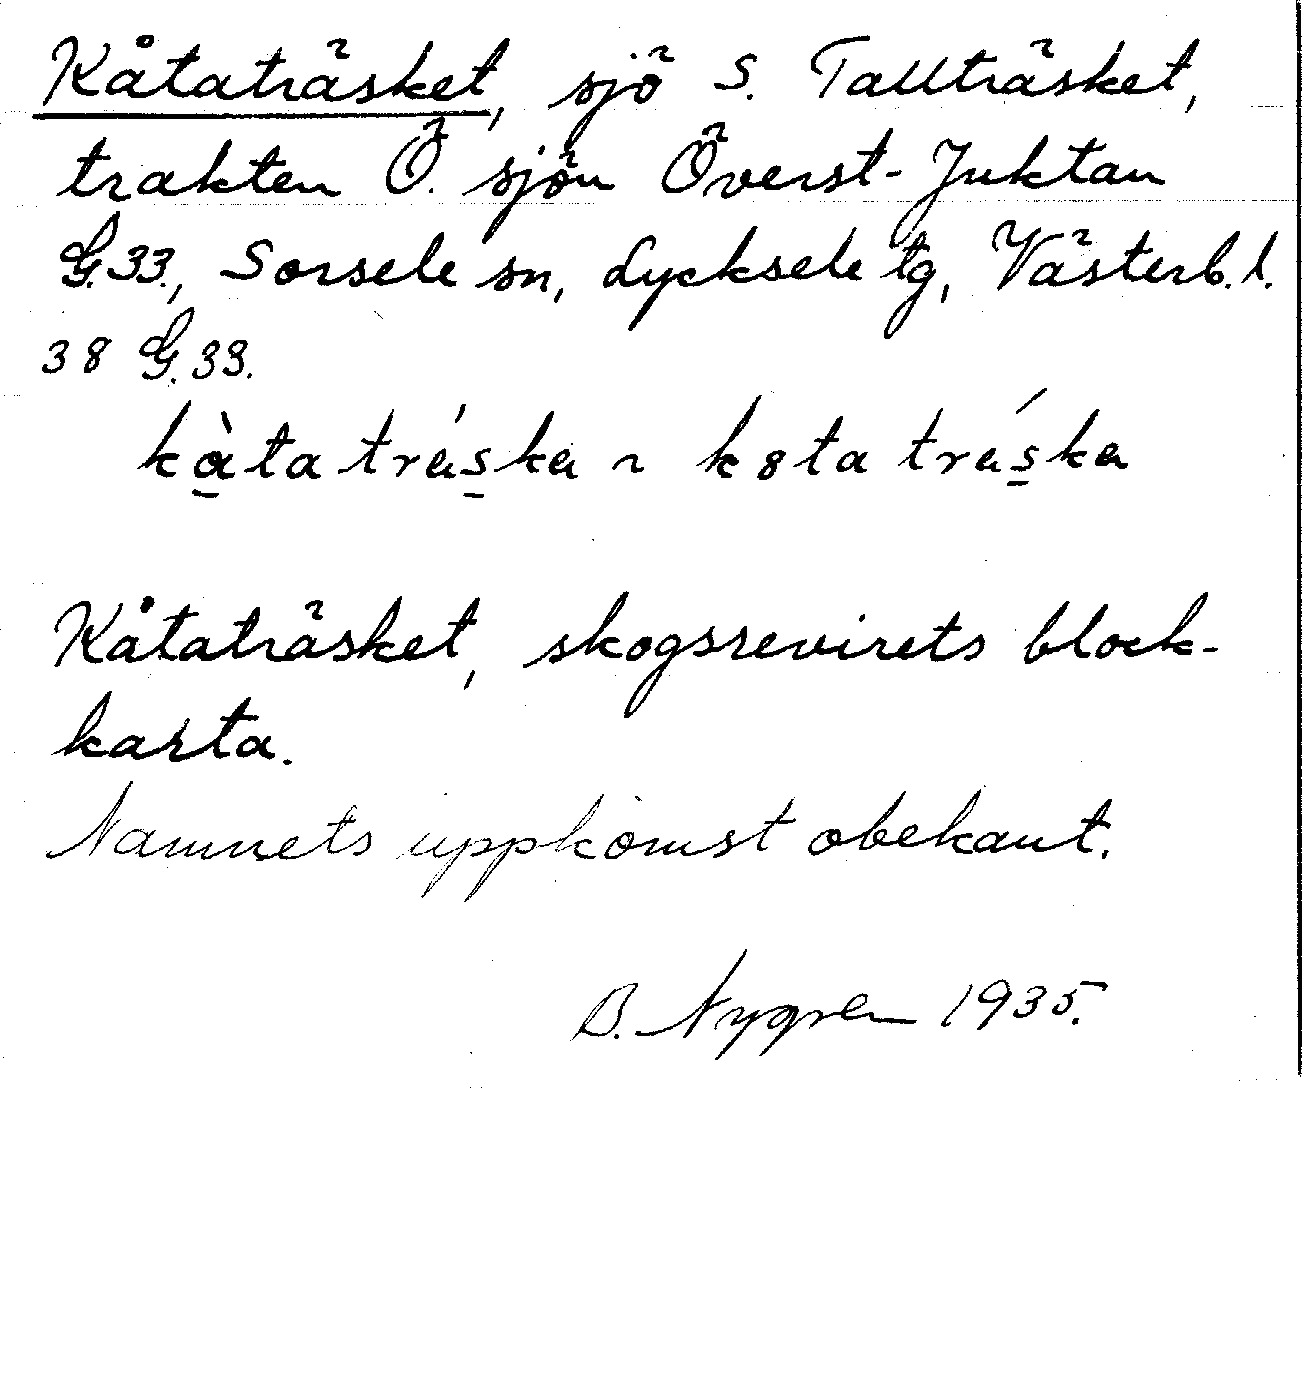 Kåtaträsket, sjö S. Tallträsket,
trakten Ö. sjön Överst-Juktan
G.33., Sorsele sn, Lycksele tg, Västerb. l.
38 G. 33.
kàta tráska ~ k8ta tráska
Kåtaträsket, skogsrevirets block-
karta.
Namnets uppkomst obekant.
B. Nygren 1935.